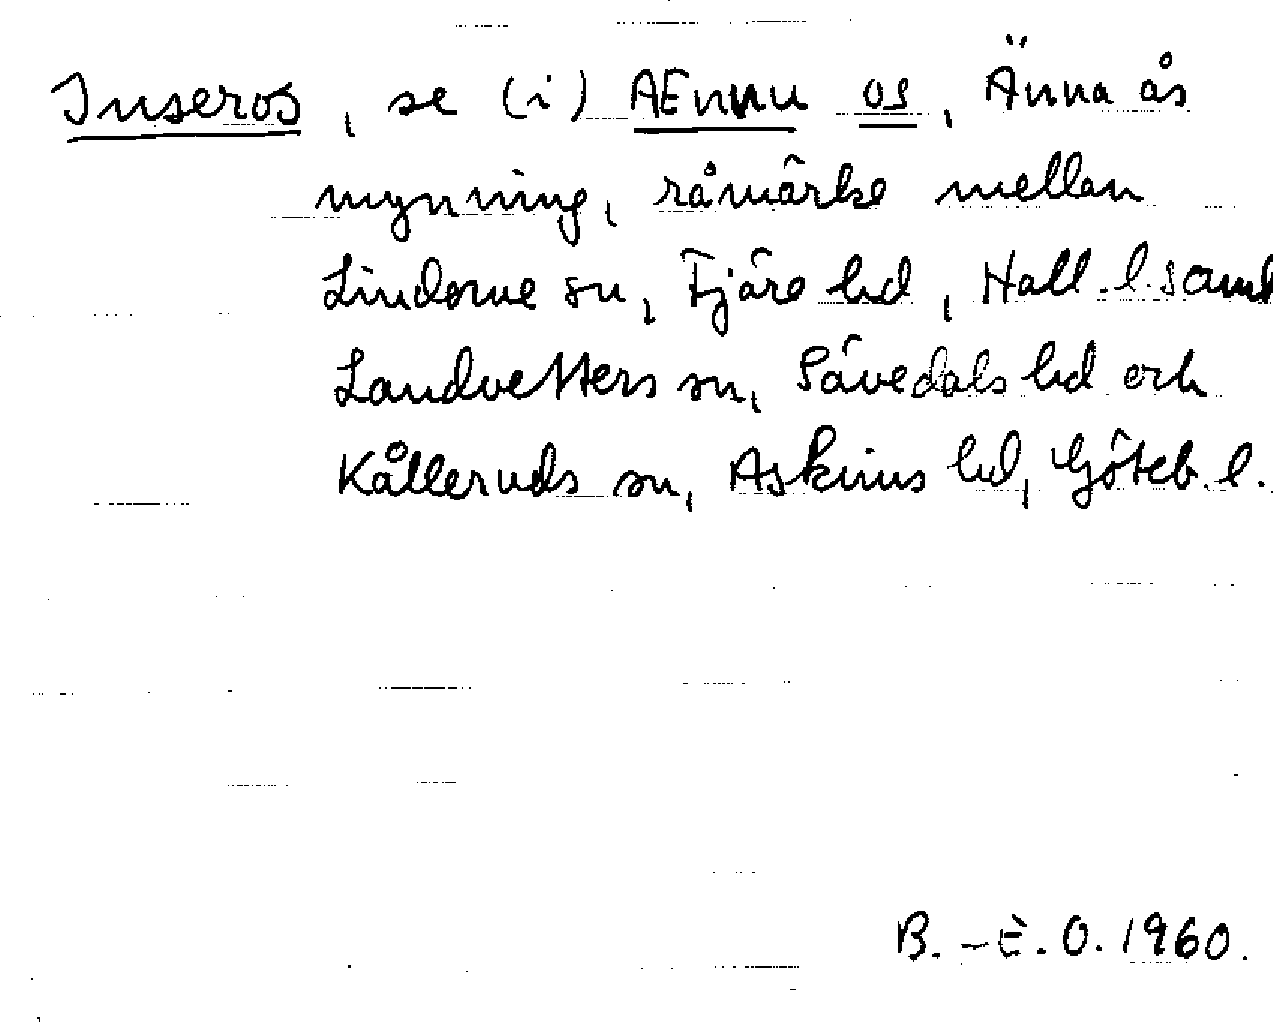 Inseros, se (i) AEnnu os, Änna ås
mynning, råmärke mellan
Lindome sn, Fjäre hd, Hall. l. samt
Landvetters sn, Sävedals hd och
Kålleruds sn, Askims hd, Göteb. l.
B.-E. O. 1960.